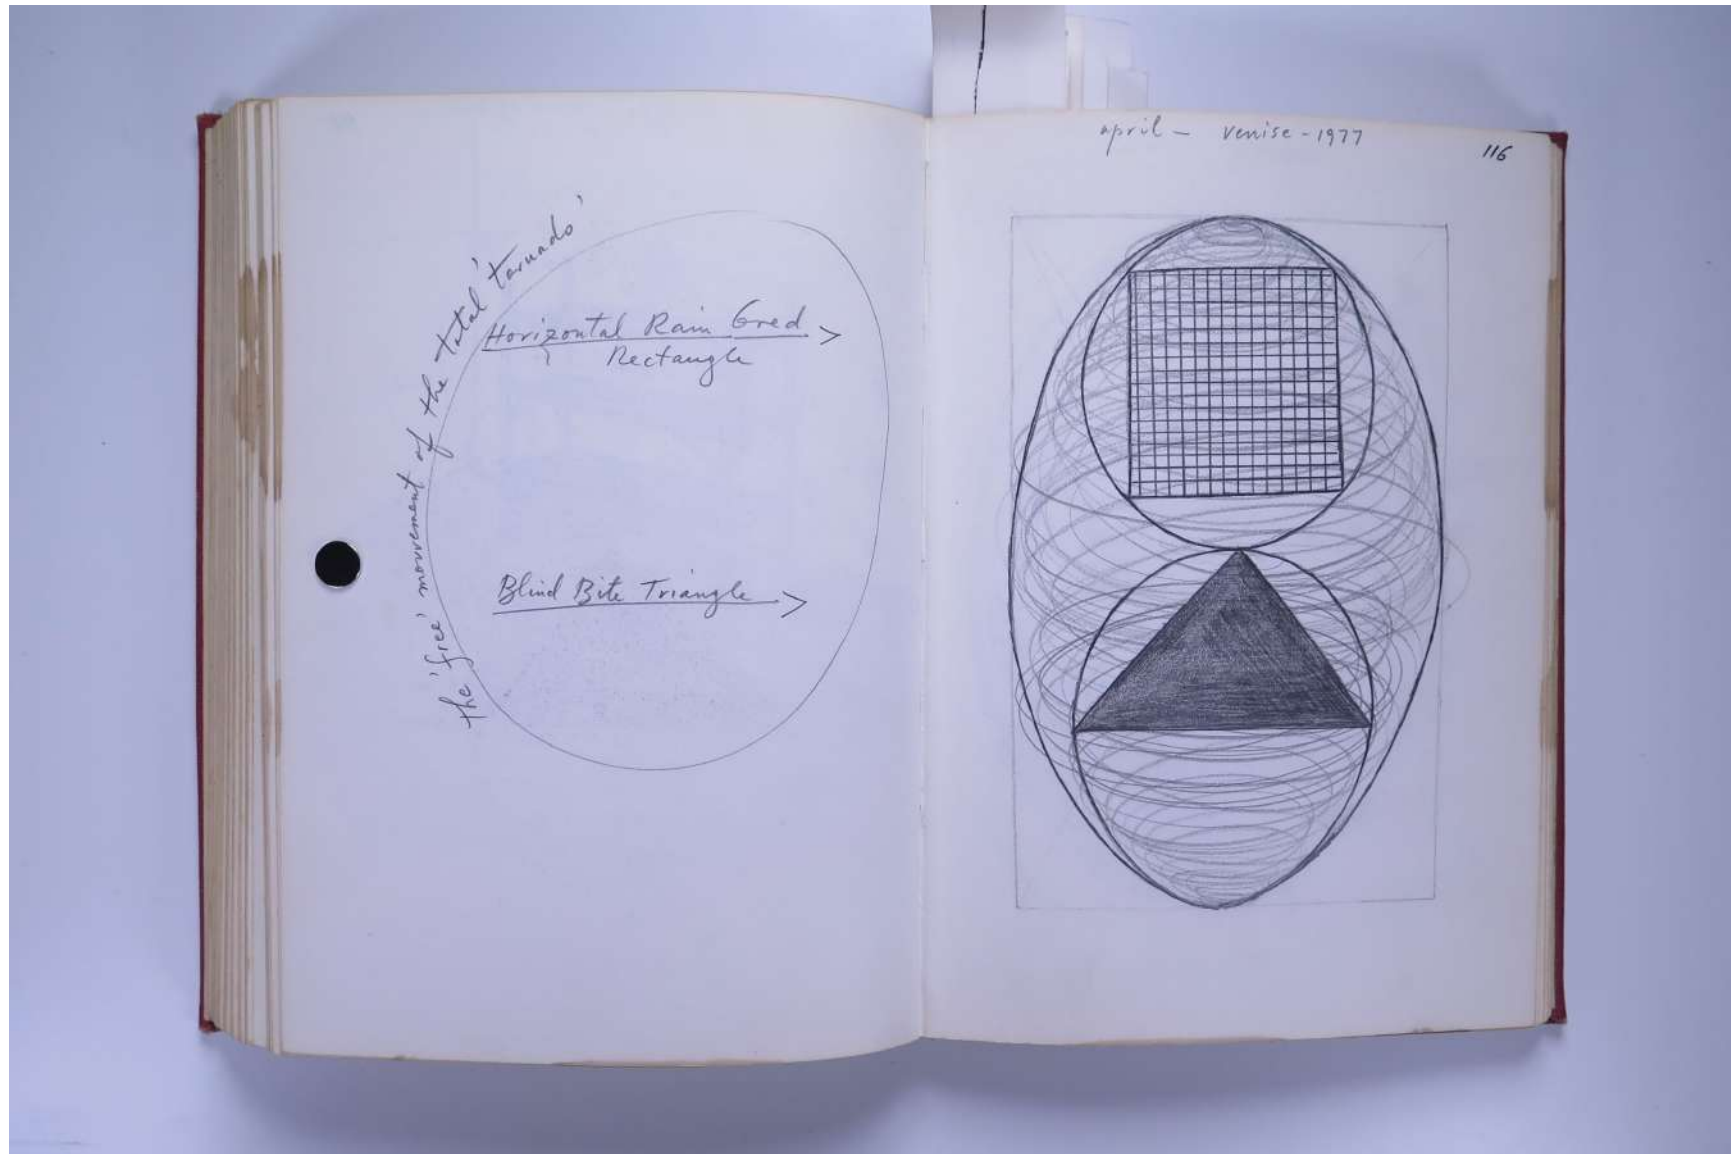 the 'free' movvement of the 'total' 'tornado'
Horizontal Rain Gred >
Rectangle
Blind Bite Triangle >
april - venise - 1977
116